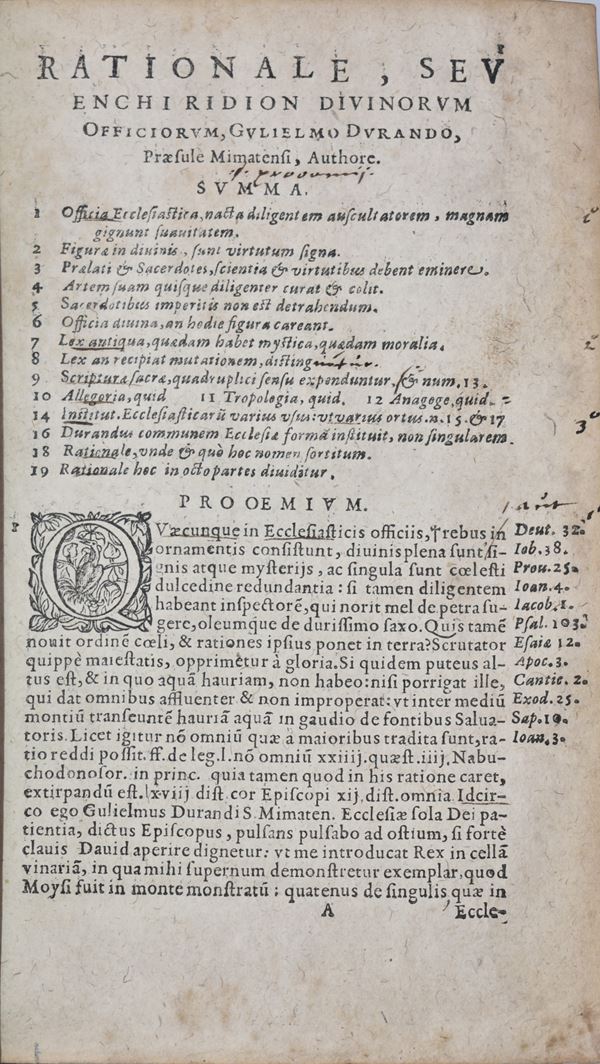 RATIONALE, SEV
ENCHIRIDION DIVINORVM
OFFICIORVM, GVLIELMO DVRANDO,
Præsule Mimatensi, Authore.
SVMMA.
1 Officia Ecclesiastica, nacta diligentem auscultatorem, magnam
gignunt suauitatem.
2 Figuræ in diuinis, sunt virtutum signa.
3 Prælati & Sacerdotes, scientia & virtutibus debent eminere.
4 Artem suam quisque diligenter curat & colit.
5 Sacerdotibus imperitis non est detrahendum.
6 Officia diuina, an hodie figura careant.
7 Lex antiqua, quædam habet mystica, quædam moralia.
8 Lex an recipiat mutationem, disting
9 Scripturæ sacræ, quadruplici sensu expenduntur, & num. 13.
10 Allegoria, quid 11 Tropologia, quid. 12 Anagoge, quid.
14 Institut. Ecclesiasticarũ varius vsus: vt varius ortus. n. 15. & 17
16 Durandus communem Ecclesiæ formã instituit, non singularem.
18 Rationale, vnde & quo hoc nomen sortitum.
19 Rationale hoc in octo partes diuiditur.
PROOEMIVM.
1 QVæcunque in Ecclesiasticis officiis, † rebus in Deut. 32.
ornamentis consistunt, diuinis plena sunt si- Iob. 38.
gnis atque mysterijs, ac singula sunt cœlesti Prou. 25.
dulcedine redundantia: si tamen diligentem Ioan. 4.
habeant inspectorẽ, qui norit mel de petra su- Iacob. 1.
gere, oleumque de durissimo saxo. Quis tamẽ Psal. 103.
nouit ordinẽ cœli, & rationes ipsius ponet in terra? Scrutator Esaiæ 12.
quippè maiestatis, opprimetur à gloria. Si quidem puteus al- Apoc. 3.
tus est, & in quo aquã hauriam, non habeo: nisi porrigat ille, Cantic. 2.
qui dat omnibus affluenter & non improperat: vt inter mediũ Exod. 25.
montiũ transeuntẽ hauriã aquã in gaudio de fontibus Salua- Sap. 10.
toris. Licet igitur nõ omniũ quæ à maioribus tradita sunt, ra- Ioan. 3.
tio reddi possit. ff. de leg. l. nõ omniũ xxiiij. quæst. iiij, Nabu-
chodonosor. in princ. quia tamen quod in his ratione caret,
extirpandũ est. lxviij dist. cor Episcopi xij, dist. omnia Idcir-
co ego Gulielmus Durandi S. Mimaten. Ecclesiæ sola Dei pa-
tientia, dictus Episcopus, pulsans pulsabo ad ostium, si fortè
clauis Dauid aperire dignetur: vt me introducat Rex in cellã
vinariã, in qua mihi supernum demonstretur exemplar, quod
Moysi fuit in monte monstratũ: quatenus de singulis quæ in
A Eccle-